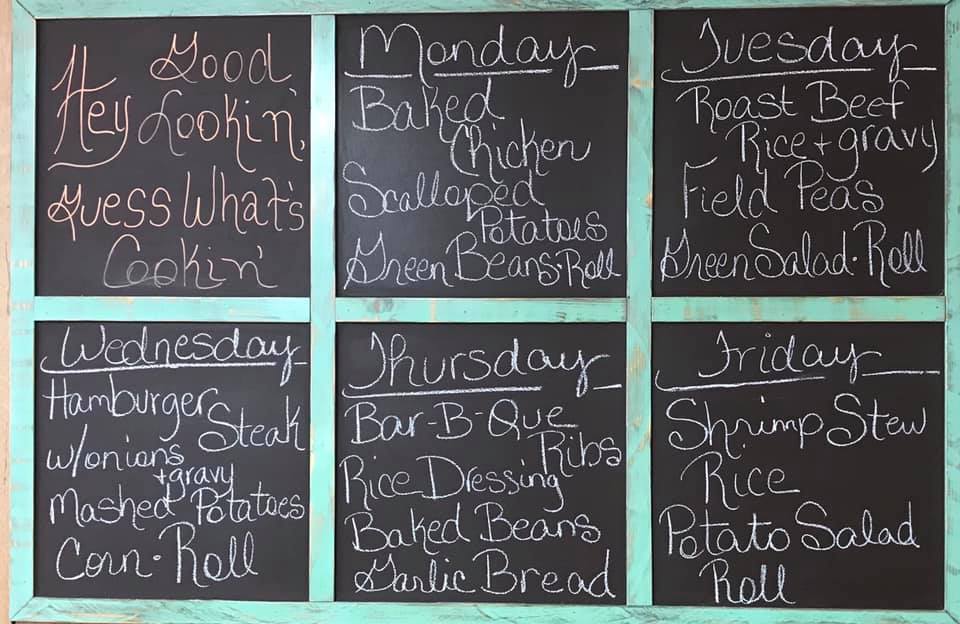 Hey Good
Lookin',
Guess What's
Cookin'
Monday
Baked
Chicken
Scalloped
Potatoes
Green Beans·Roll
Tuesday
Roast Beef
Rice + gravy
Field Peas
Green Salad·Roll
Wednesday
Hamburger
Steak
w/onions
+gravy
Mashed Potatoes
Corn·Roll
Thursday
Bar-B-Que
Ribs
Rice Dressing
Baked Beans
Garlic Bread
Friday
Shrimp Stew
Rice
Potato Salad
Roll